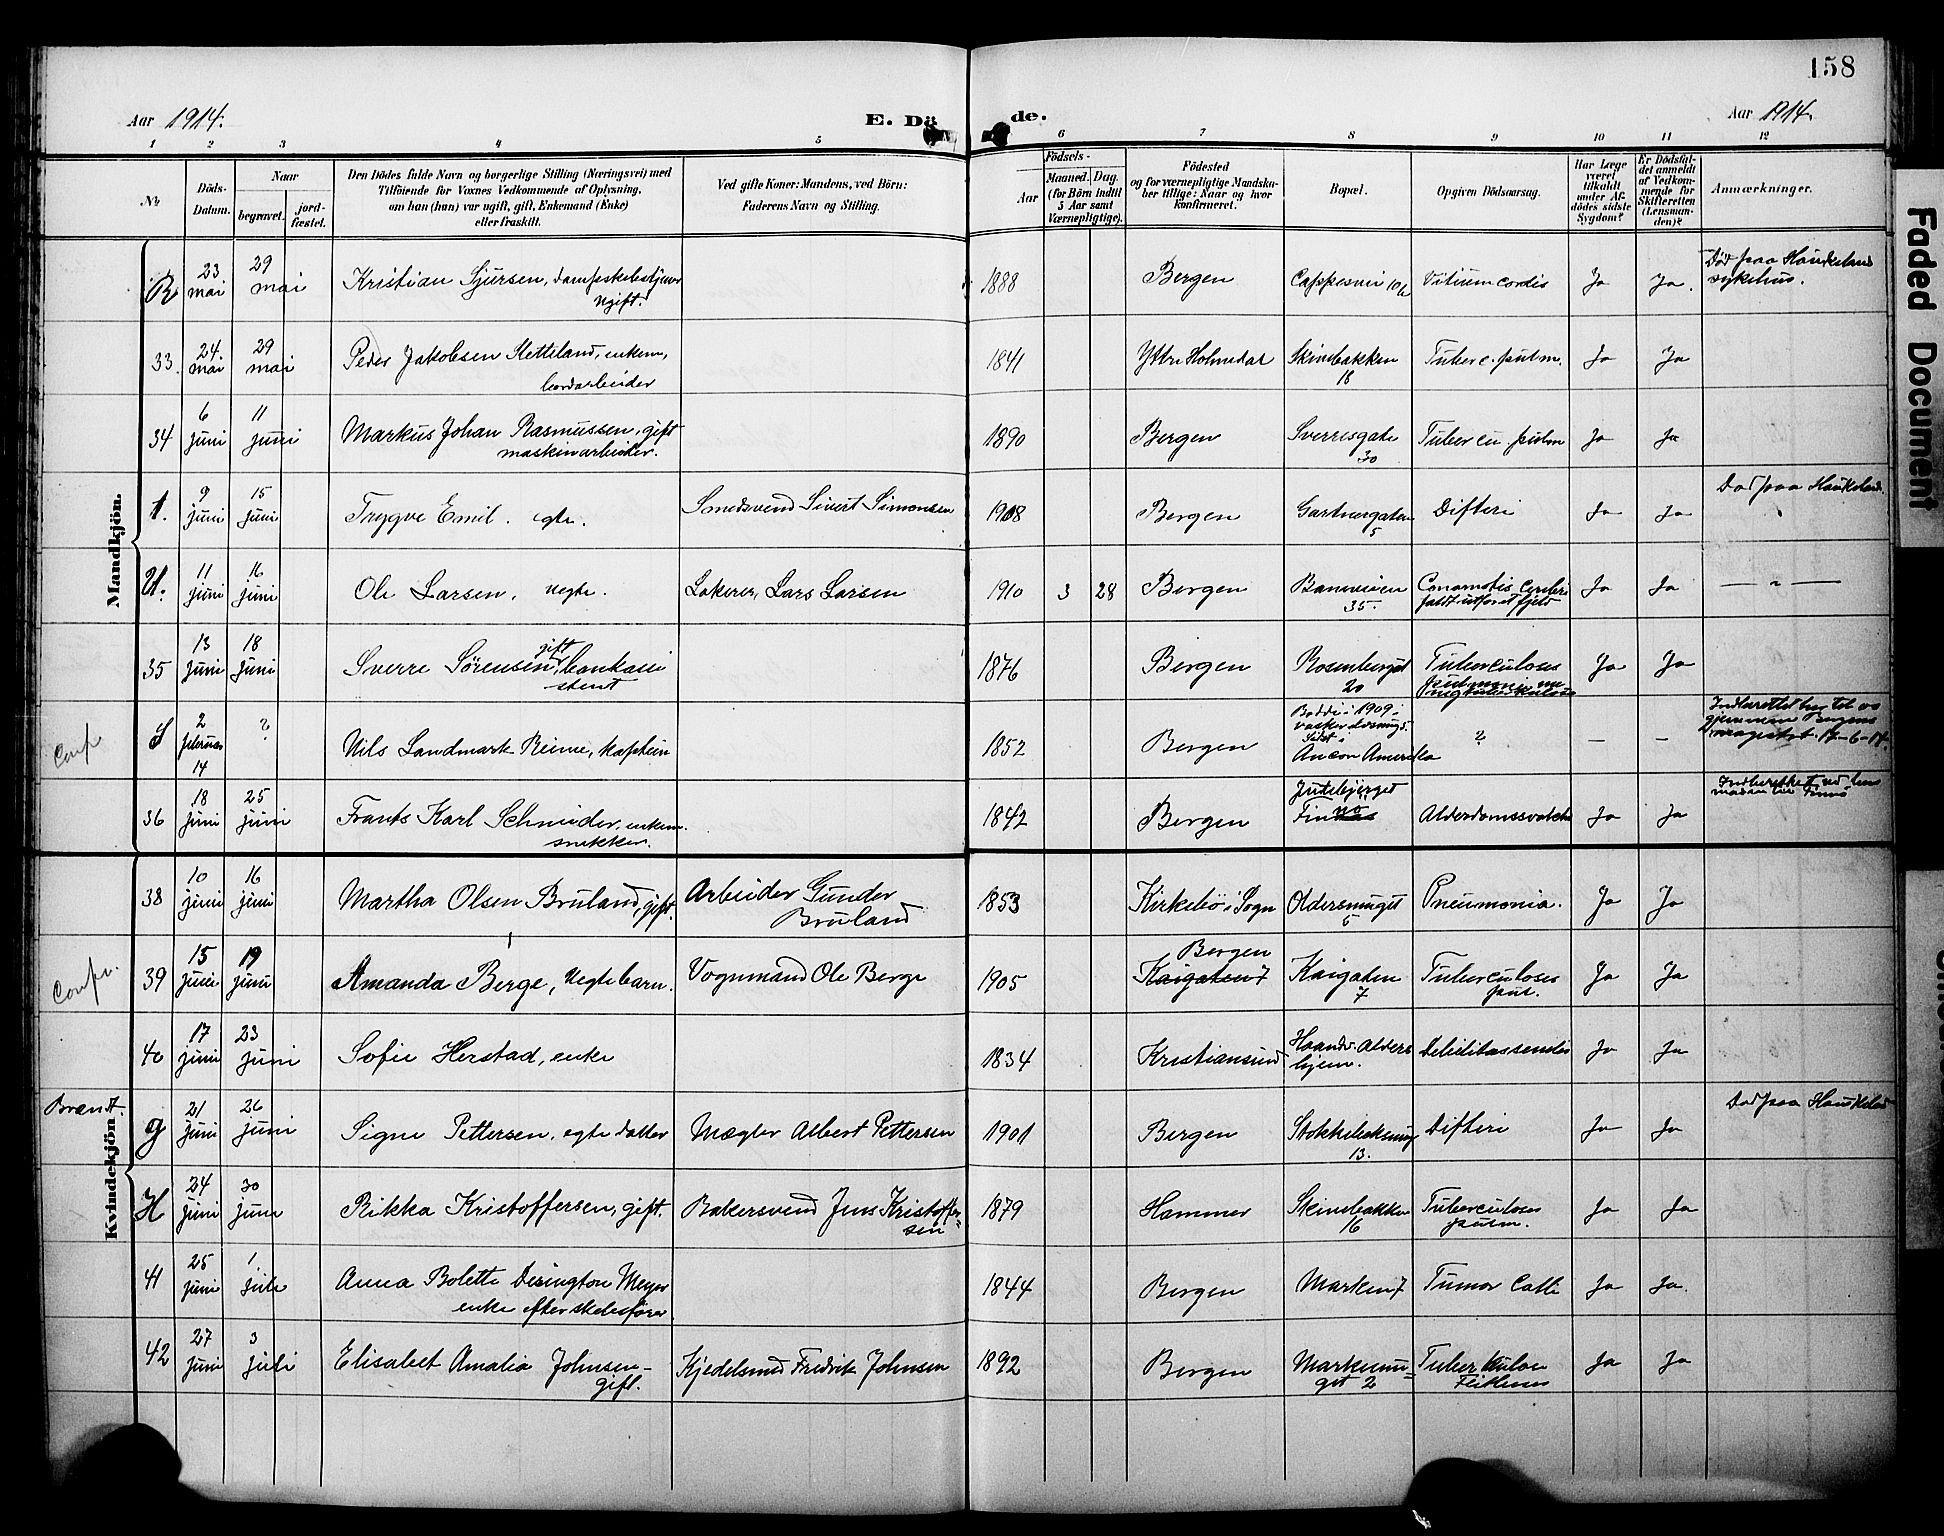 158
Aar 1914.
E. Dö
de.
Aar 1914.
1 2 3 4 5 6 7 8 9 10 11 12
No
Döds-Datum.
Naar
begravet.
jord-fæstet.
Den Dödes fulde Navn og borgerlige Stilling (Næringsvei) med
Tilföiende for Voxnes Vedkommende af Oplysning,
om han (hun) var ugift, gift, Enkemand (Enke)
eller fraskilt.
Ved gifte Koner: Mandens, ved Börn:
Faderens Navn og Stilling.
Födsels-
Aar
Maaned. Dag.
(for Börn indtil
5 Aar samt
Værnepligtige).
Födested
og for værnepligtige Mandska-
ber tillige: Naar og hvor
konfirmeret.
Bopæl.
Opgiven Dödsaarsag.
Har Læge
været
tilkaldt
under Af-
dödes sidste
Sygdom?
Er Dödsfal-
det anmeldt
af Vedkom-
mende for
Skifteretten
(Lensman-
den)?
Anmærkninger.
Mandkjön.
R 23 mai 29 mai Kristian Sjursen, ugift. 1888 Bergen Vitium cordis Ja Ja. Død paa Haukeland sykehus.
33. 24. mai 29 mai Peder Jakobsen enkem, 1841 Ytre Holmedal Skivebakken 18 Tuberc. pulm. Ja Ja
34 6 juni 11 juni Markus Johan Rasmussen, gift maskinarbeider. 1890 Bergen Sverresgate 30 Tubercu. pulm Ja Ja
9 juni 15 juni Trygve Emil. egte. Smedsvend Sivert Simonsen 1908 Bergen Gartnergaten 5 Difteri Ja Ja Død paa Haukeland.
U. 11 juni 16 juni Ole Larsen, uegte. Lakerer, Lars Larsen 1910 3 28 Bergen 35. Ja Ja — " —
35 13 juni 18 juni Sverre Sørensen, gift bankassistent 1876 Bergen Rosenberget 20 Tuberculosis Ja Ja
Conf S 2 februar 14 ? Nils Landmark Reime, kaptein 1852 Bergen Bodde i 1909 i sidst i Ancon Amerika ? — — gjennem Bergens magistrat 17-6-14.
36 18 juni 25 juni Frants Karl Schneider, enkem. snekker. 1842 Bergen Alderdomssvakhet Ja Ja
Kvindekjön.
38 10 juni 16 juni Martha Olsen Bruland, gift. Arbeider Gunder Bruland 1853 Kirkebö i Sogn Oldersmuget 5 Pneumonia. Ja Ja
Conf. 39 15 juni 19 juni Amanda Berge, uegte barn. Vognmand Ole Berge 1905 Bergen Kaigaten 7 Kaigaten 7 Tuberculoses pul. Ja Ja
40 17 juni 23 juni Sofie Herstad, enke 1834 Kristiansund hjem. Ja Ja
Brændt. g 21 juni 26 juni Signe Pettersen, egte datter Mægler Albert Pettersen 1901 Bergen 13. Difteri Ja Ja Død paa Haukeland
H 24 juni 30 juni Rikka Kristoffersen, gift. Bakersvend Jens Kristoffersen 1879 Hammer Skivebakken 16 Tuberculoses pulm. Ja Ja
41 25 juni 1. juli Anna Bolette Meyer enke efter skibsfører 1844 Bergen Marken 7 Ja Ja.
42 27 juni 3 juli Elisabet Amalia Johnsen- gift. Kjedelsmed Fredrik Johnsen 1892 Bergen 2 Ja Ja
Faded Document